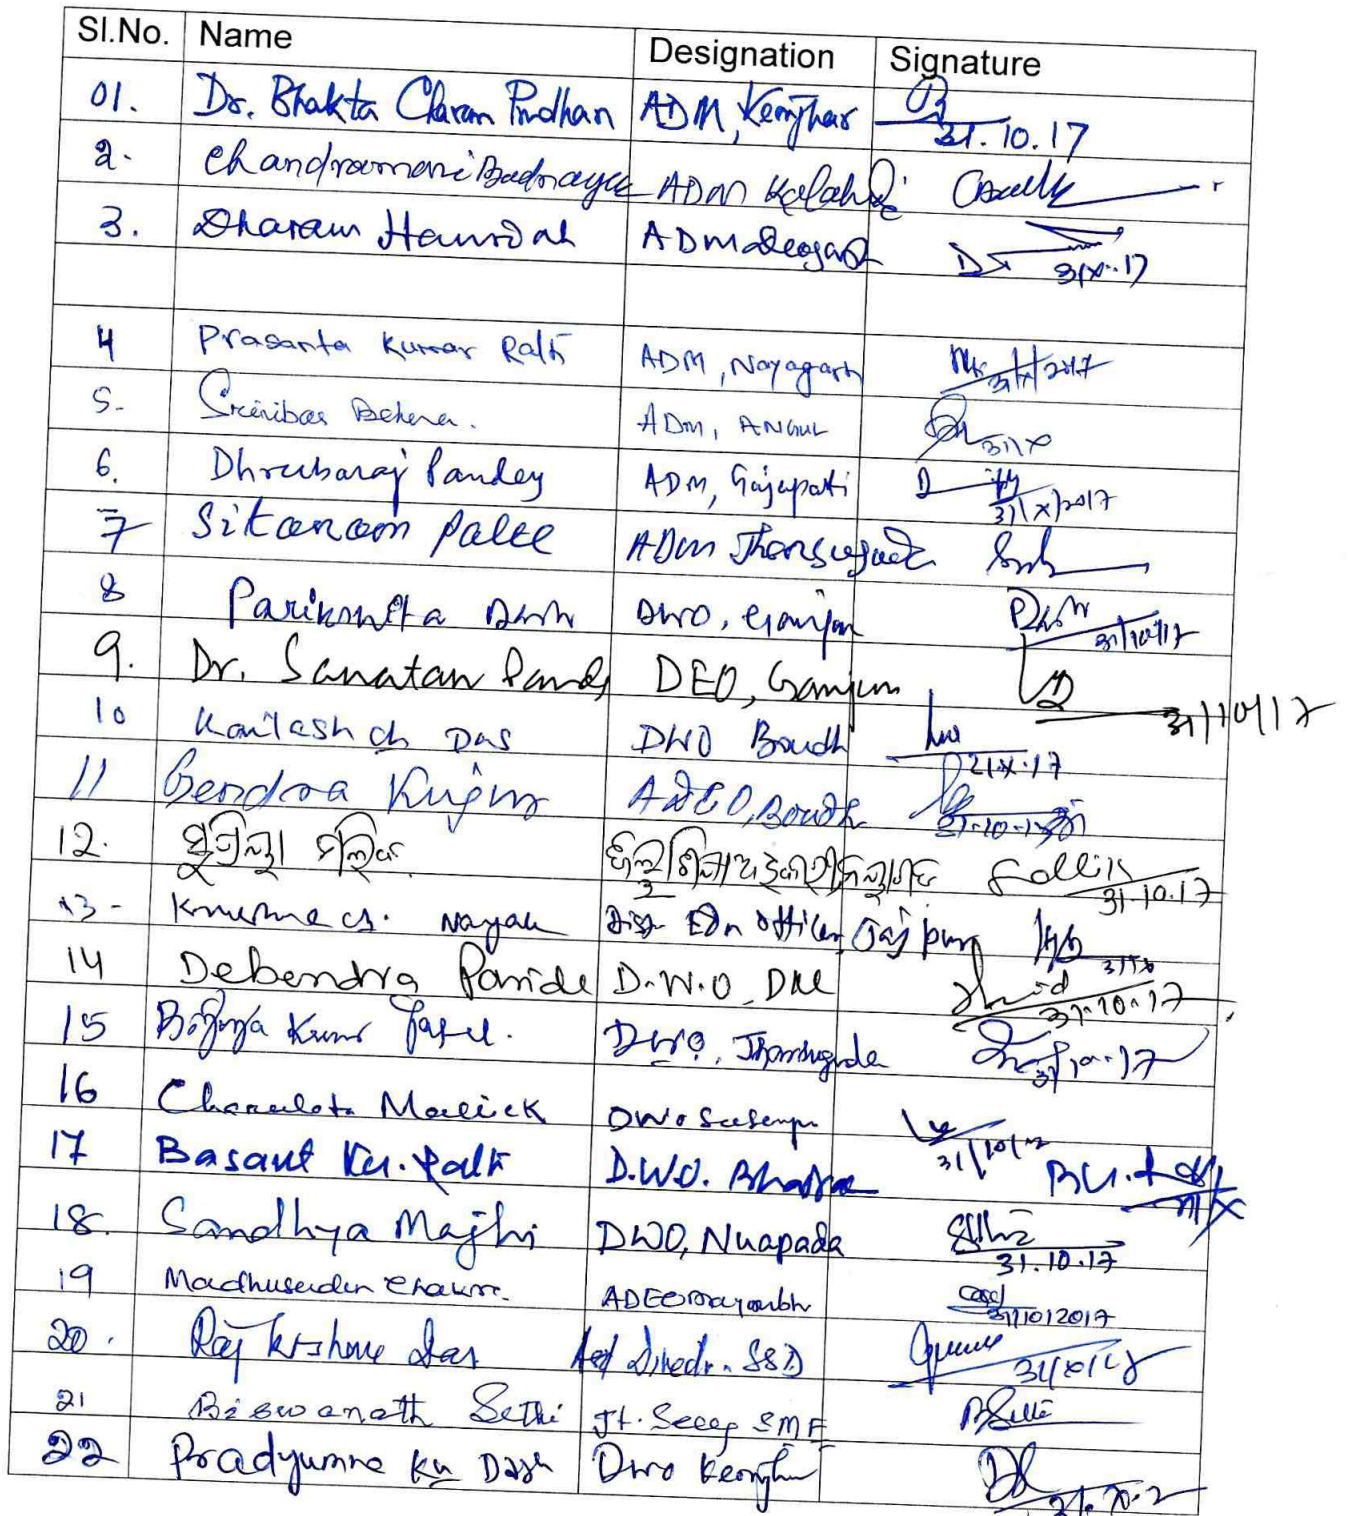 Sl.No. Name Designation Signature
01. Dr. Bhakta Charan Pradhan ADM, Keonjhar 31.10.17
2. Chandramani Badnayak ADM Kalahandi
3. Dharam Hansdah ADM Deogarh 31.X.17
4 Prasanta Kumar Rath ADM, Nayagarh 31/X/2017
5. Srinibas Behera. ADM, ANGUL 31/X
6. Dhrubaraj Pandey ADM, Gajapati 31/X/2017
7 Sitaram Patel ADM Jharsuguda
8 Parikshita Dash DWO, Ganjam 31/10/17
9. Dr. Sanatan Panda DEO, Ganjam 31/10/17
10 Kailash ch Das DWO Boudh
11 Gendra Kujur ADEO, Boudh 31-10-17
12. ସୁପ୍ରିୟା ମଲିକ 31.10.17
13- Krushna ch. Nayak Edn Officer, Jajpur
14 Debendra Parida D.W.O, DKL 31.10.17
15 Kumar Patel. DWO, Jharsuguda 31/10.17
16 Charulata Mallick DWO 31/10/17
17 Basant Ku. Rath D.W.O. Bhadrak
18. Sandhya Majhi DWO, Nuapada 31.10.17
19 Madhusudan ADEO 31/10/2017
20. Raj Kishore Das SSD
21 Biswanath Sethi Jt. Secy SME BSethi
22 Pradyumna Ku Dash DWO Keonjhar